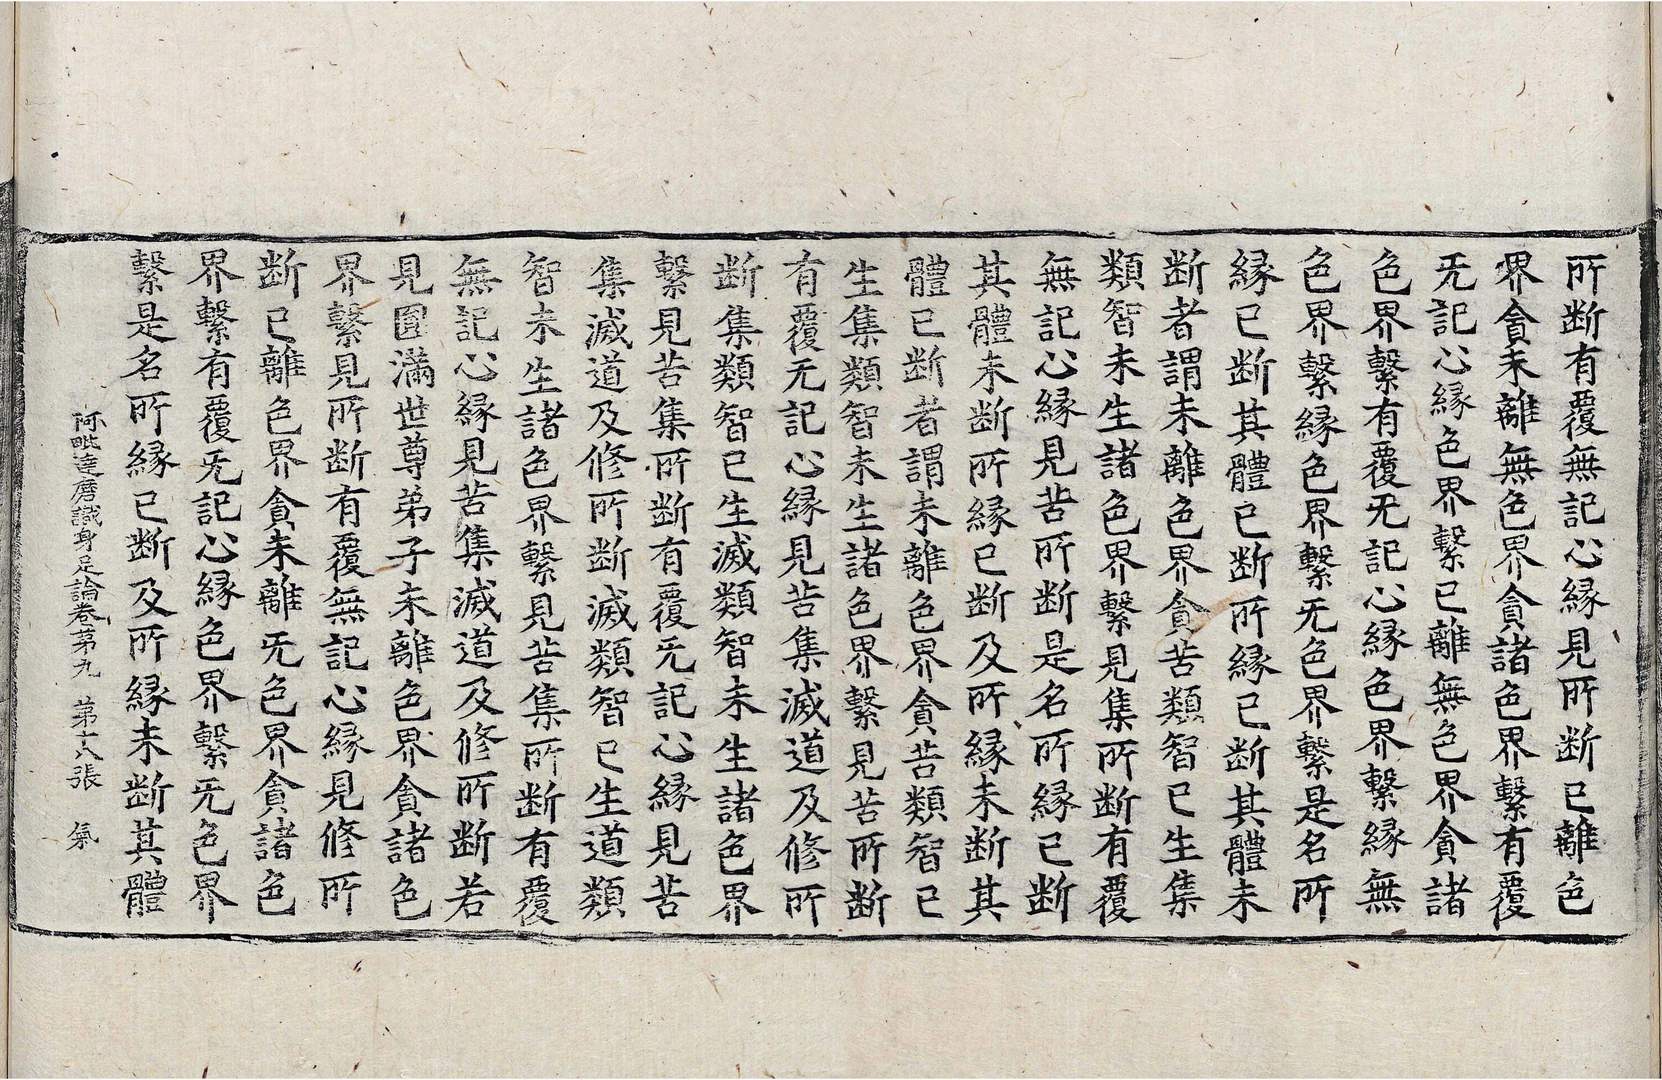 所断有覆無記心縁見所断已離色
界貪未離無色界貪諸色界繫有覆
无記心縁色界繫已離無色界貪諸
色界繫有覆无記心縁色界繫縁無
色界繫縁色界繫无色界繫是名所
縁已断其體已断所縁已断其體未
断者謂未離色界貪苦類智已生集
類智未生諸色界繫見集所断有覆
無記心縁見苦所断是名所縁已断
其體未断所縁已断及所縁未断其
體已断者謂未離色界貪苦類智已
生集類智未生諸色界繫見苦所断
有覆无記心縁見苦集滅道及修所
断集類智已生滅類智未生諸色界
繫見苦集所断有覆无記心縁見苦
集滅道及修所断滅類智已生道類
智未生諸色界繫見苦集所断有覆
無記心縁見苦集滅道及修所断若
見圓滿世尊弟子未離色界貪諸色
界繫見所断有覆無記心縁見修所
断已離色界貪未離无色界貪諸色
界繫有覆无記心縁色界繫无色界
繫是名所縁已断及所縁未断其體
阿毗達磨識身足論卷第九　第十八張　氣